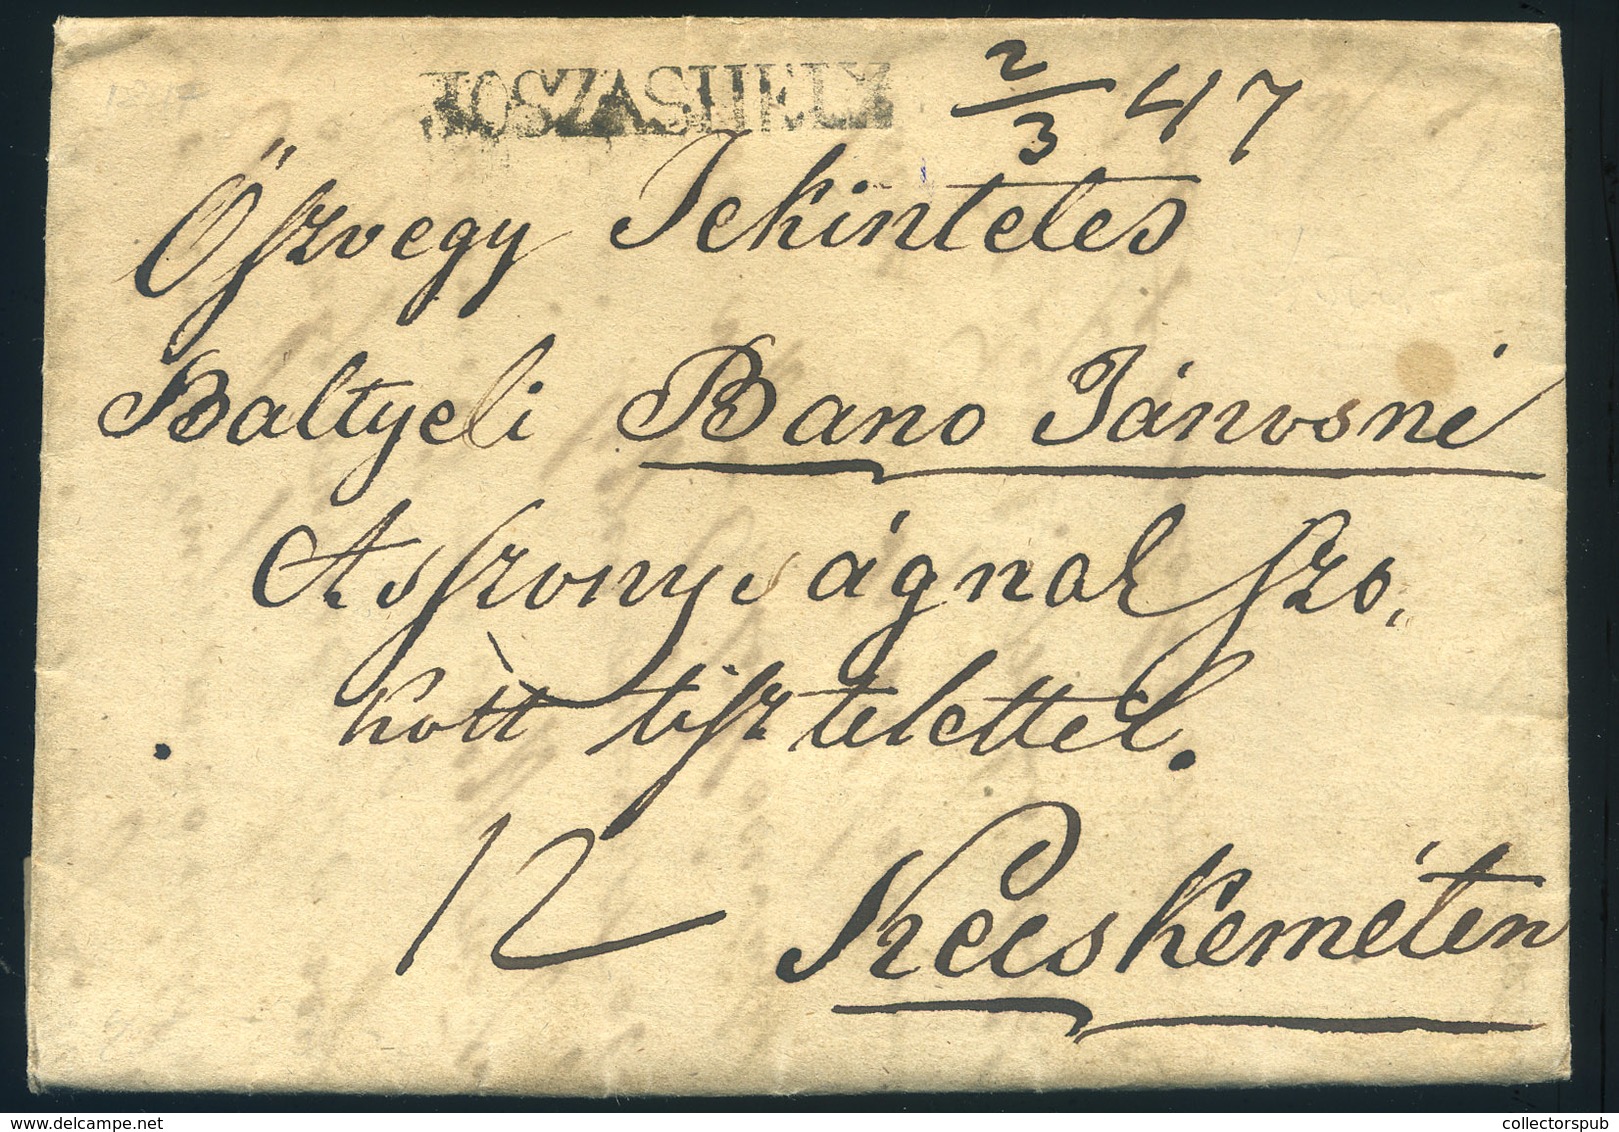 JOSZASHELY
2/3 47
1847
Öszvegy Tekintetes
Baltyeli Bano Jánosné
Asszonyságnak szo,
kott tisztelettel.
12 Kecskeméten
collectorspub